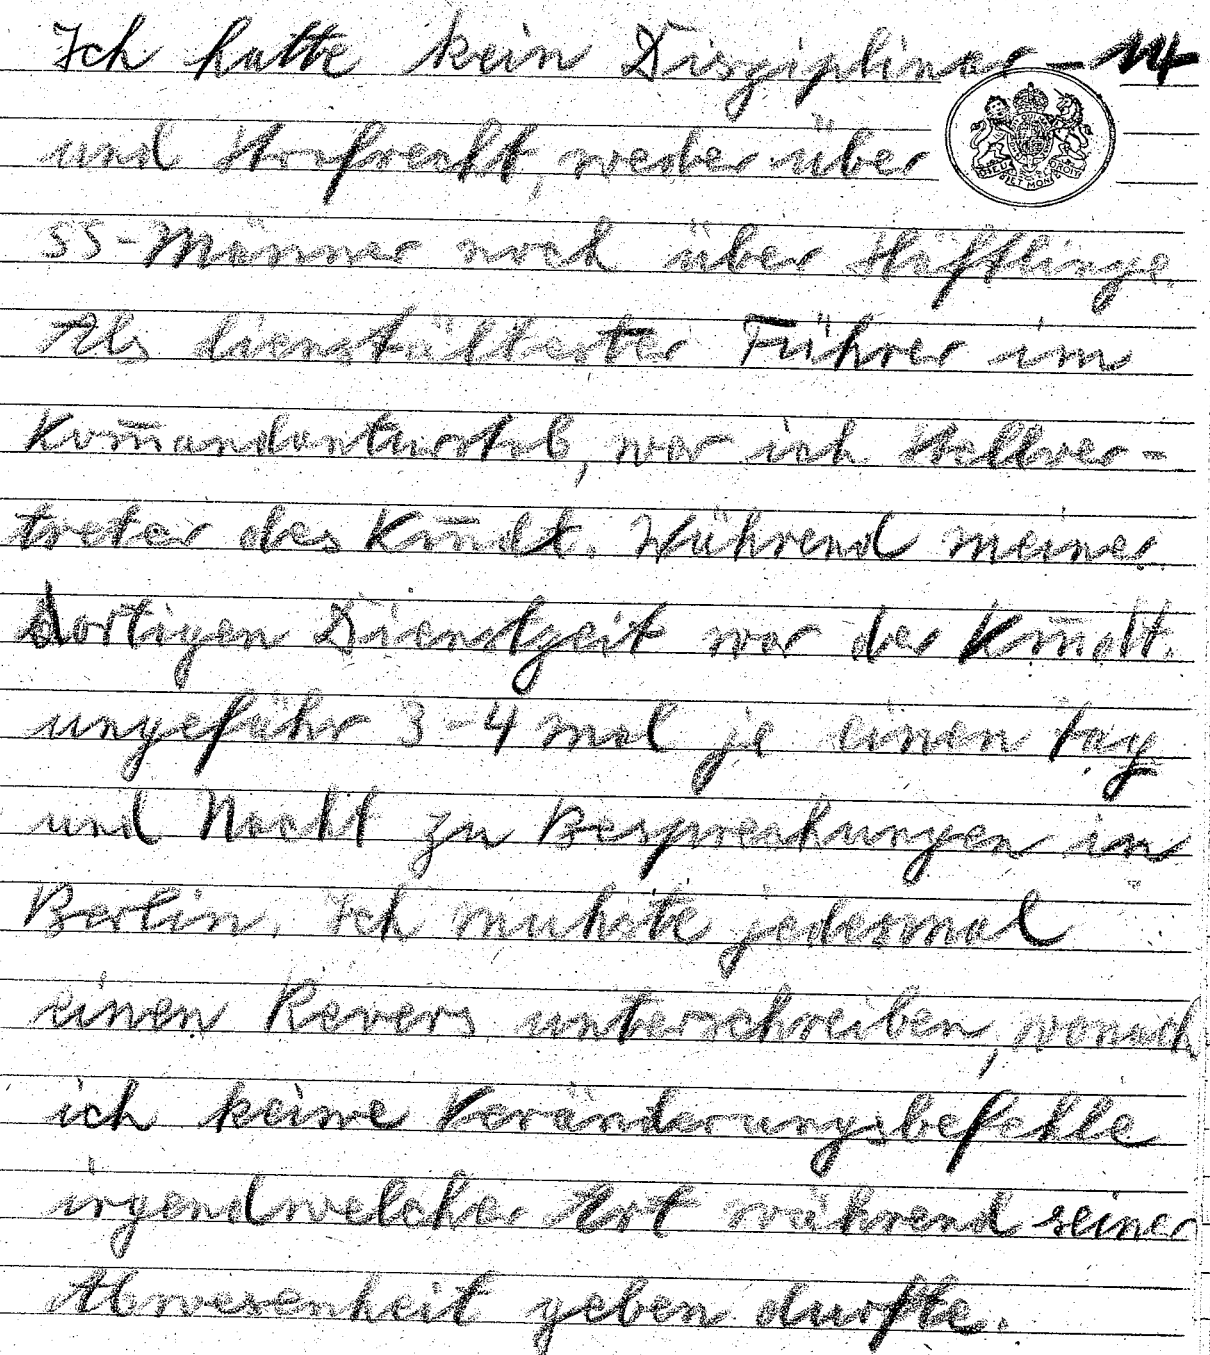 Ich hatte kein Disziplinar- 14
und Strafrecht, weder über
SS-Männer noch über Häftlinge.
Als dienstältester Führer im
Kom̄andanturstab, war ich Stellver-
treter des Km̄dt. Während meiner
dortigen Dienstzeit war der Km̄dt.
ungefähr 3-4 mal je einen Tag
und Nacht zu Besprechungen in
Berlin. Ich muhste jedesmal
einen Revers unterschreiben, wonach
ich keine Veränderungsbefehle
irgendwelcher Art während seiner
Abwesenheit geben durfte.